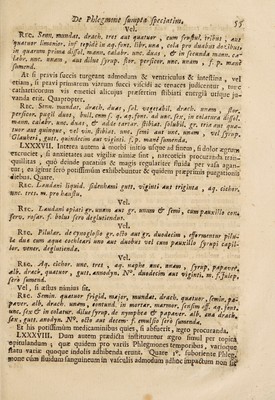 De Phlegmone sumptâ speciatim.
55
Vel.
Rec. Semn. mundat. drach. tres aut quatuor, cum scrupul. tribus, aut
quatuor limonior. inf. tepidè in aq. font. libr. una, cola pro duabus dosibus,
in quarum prima dissol. mann. calabr. unc. duas, & in secunda mann. ca-
labr. unc. unam, aut dilue syrup. flor. persicor. unc. unam, f. p. manè
sumend.
At si pravis succis turgeant abdomûs & ventriculus & intestina, vel
etiam, si pravi primarum viarum succi viscidi ac tenaces judicentur, tunc
catharticorum vis emetici alicujus permistione stibiati erringi utiliter ju-
vanda erit. Quapropter,
Rec. Semn. mundat. drach. duas, sal. vegetabil. drach. unam, flor.
persicor. pugil. duos, bull. cum s. q. aq. font. ad unc. sex, in colatura dissol.
mann. calabr. unc. duas, & adde tartar. stibiat. solubil. gr. tria aut qua-
tuor aut quinque, vel vin. stibiat. unc. semi aut unc. unam, vel syrup.
Glauberi, gutt. quindecim aut viginti, f. p. manè sumenda.
LXXXVII. Interea autem à morbi initio usque ad finem, si dolor ægrum
excruciet, si anxietates aut vigiliæ nimiæ sint, narcotica procuranda tran-
quillitas; quo deinde pacatiùs & magis regulariter fluida per vasa agan-
tur; ea igitur serò potissimùm exhibebuntur & quidem præprimis purgationis
diebus. Quare,
Rec. Laudani liquid. sidenhami gutt. viginti aut triginta, aq. cichor.
unc. tres. m. pro haustu.
Vel.
Rec. Laudani opiati gr. unum aut gr. unum & semi, cum pauxillo con-
serv. rosar. f. bolus serò deglutiendus.
Vel.
Rec. Pilular. de cynoglossa gr. octo aut gr. duodecim, efformentur pilu-
læ duæ cum aquæ cochleari uno aut duobus vel cum pauxillo syrupi capil-
lor. vener. deglutiendæ.
Vel.
Rec. Aq. cichor. unc. tres, aq. naphæ unc. unam, syrup. papaver.
alb. drach. quatuor, gutt. anodyn. N°. duodecim aut viginti, m. f. julep.
serò sumend.
Vel, si æstus nimius sit.
Rec. Semin. quatuor frigid. major. mundat. drach. quatuor, semin. pa-
paver. alb. drach. unam, contund. in mortar. marmor. sensim aff. aq. font.
unc. sex & in colatur. dilue syrup. de nymphæa & papaver. alb. ana drach.
sex, gutt. anodyn. N°. octo aut decem: f. emulsio serò sumenda.
Et his potissimùm medicaminibus quies, si abfuerit, ægro procuranda.
LXXXVIII. Dum autem prædicta instituuntur ægro simul per topica
opitulandum; quæ quidem pro variis Phlegmones temporibus, variâque
flata variè quoque indolis adhibenda erunt. Quare 1°. suboriente Phleg-
mone cùm fluidum sanguineum in vasculis admodùm adhuc impactum non sit